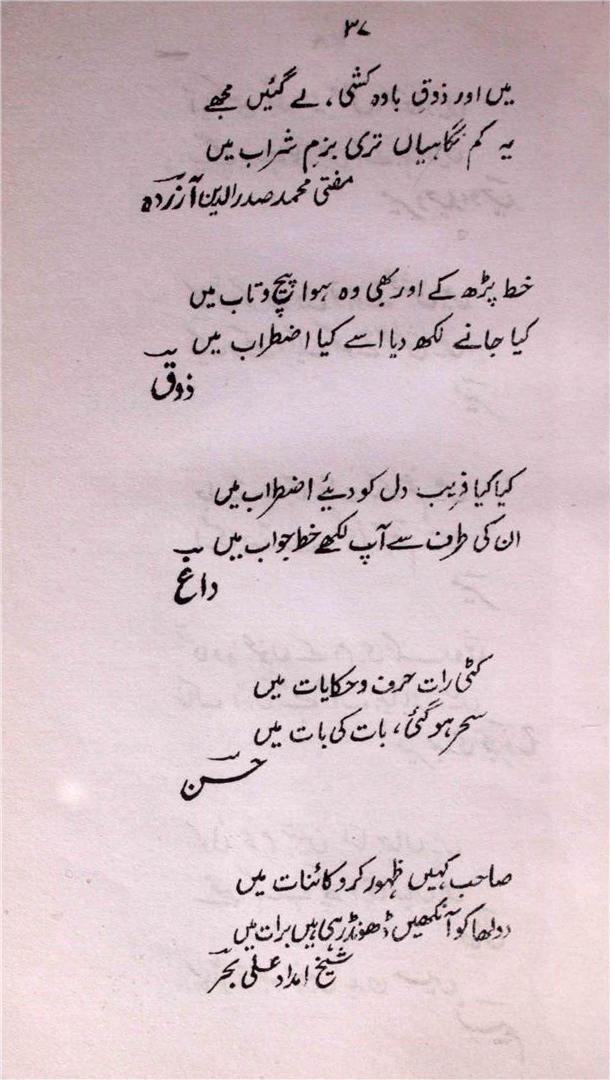 ۳۷
میں اور ذوقِ بادہ کشی، لے گئیں مجھے
یہ کم نگاہیاں تری بزمِ شراب میں
مفتی محمد صدر الدین آزردہ
خط پڑھ کے اور بھی وہ ہوا پیچ و تاب میں
کیا جانے لکھ دیا اسے کیا اضطراب میں
ذوق
کیا کیا فریب دل کو دیئے اضطراب میں
ان کی طرف سے آپ لکھے خط جواب میں
داغ
کٹی رات حرف و حکایات میں
سحر ہو گئی، بات کی بات میں
حسن
صاحب کہیں ظہور کرو کائنات میں
دولھا کو آنکھیں ڈھونڈ رہی ہیں برات میں
شیخ امداد علی بحر